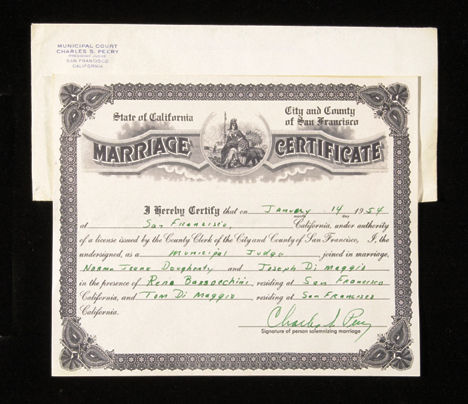 MUNICIPAL COURT
CHARLES S. PEERY
PRESIDING JUDGE
SAN FRANCISCO
CALIFORNIA
State of California
City and County
of San Francisco
MARRIAGE CERTIFICATE
I Hereby Certify that on January 14 1954
month day
at San Francisco, California, under authority
of a license issued by the County Clerk of the City and County of San Francisco, I, the
undersigned, as a Municipal Judge joined in marriage,
Norma Jeane Dougherty and Joseph Di Maggio
in the presence of Reno Barsocchini, residing at San Francisco
California, and Tom Di Maggio, residing at San Francisco
California.
Charles S. Peery
Signature of person solemnizing marriage